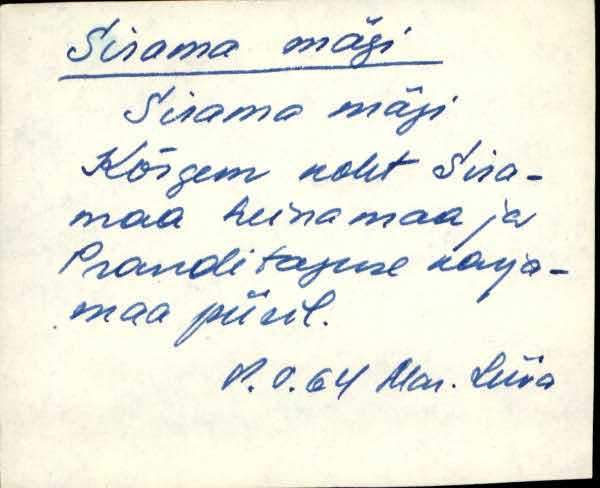 Sirama mägi
Sirama mägi
Kõrgem koht Sira-
maa heinamaa ja
Pranditaguse karja-
maa piiril.
P. O. 64 Mar. Liiva